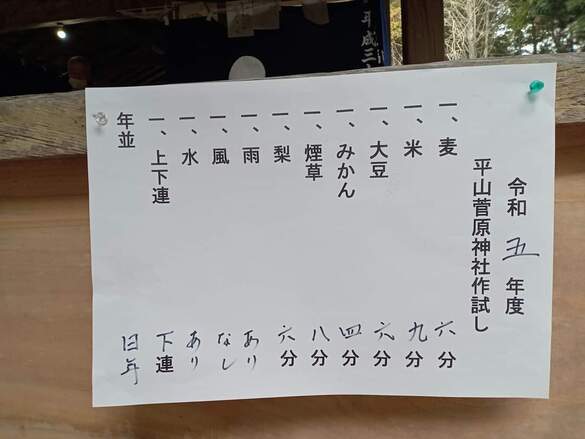 令和 五 年度
平山菅原神社作試し
一、麦 六分
一、米 九分
一、大豆 六分
一、みかん 四分
一、煙草 八分
一、梨 六分
一、雨 あり
一、風 なし
一、水 あり
一、上下連 下連
年並
平成三